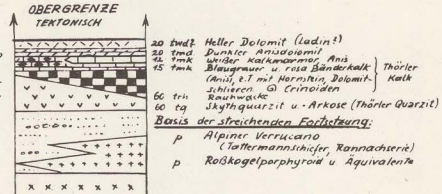 OBERGRENZE
TEKTONISCH
20 twd? Heller Dolomit (Ladin?)
20 tmd Dunkler Anisdolomit
12 tmk Weißer Kalkmarmor, Anis
15 tmk Blaugrauer u. rosa Bänderkalk
(Anis), z.T. mit Hornstein, Dolomit-
schlieren @ Crinoiden
Thörler
Kalk
60 trh Rauhwacke
60 tq Skythquarzit u. -Arkose (Thörler Quarzit)
Basis der streichenden Fortsetzung:
p Alpiner Verrucano
(Tattermannschiefer, Rannachserie)
p Roßkogelporphyroid u. Äquivalente